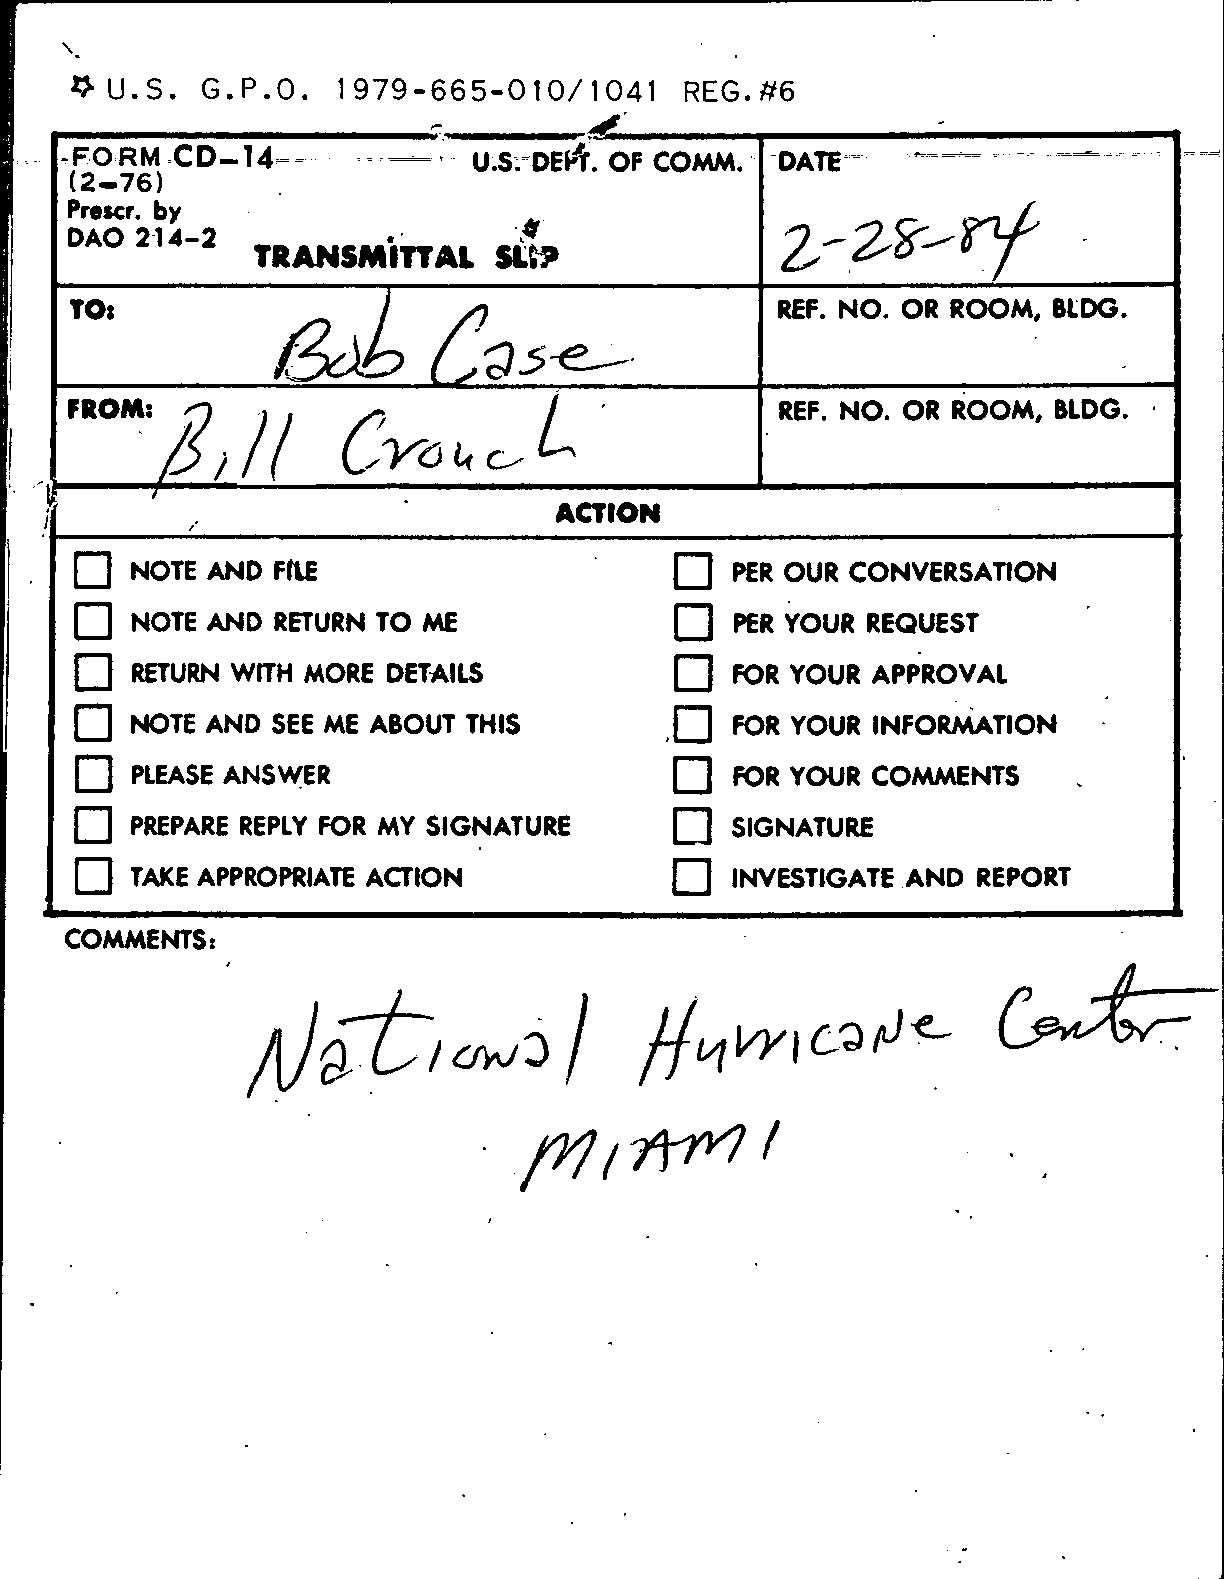 ☆ U.S. G.P.O. 1979-665-010/1041 REG.#6
FORM CD-14 U.S. DEPT. OF COMM. DATE
(2-76)
Prescr. by
DAO 214-2
TRANSMITTAL SLIP 2-28-84
TO: Bob Case REF. NO. OR ROOM, BLDG.
FROM: Bill Crouch REF. NO. OR ROOM, BLDG.
ACTION
NOTE AND FILE PER OUR CONVERSATION
NOTE AND RETURN TO ME PER YOUR REQUEST
RETURN WITH MORE DETAILS FOR YOUR APPROVAL
NOTE AND SEE ME ABOUT THIS FOR YOUR INFORMATION
PLEASE ANSWER FOR YOUR COMMENTS
PREPARE REPLY FOR MY SIGNATURE SIGNATURE
TAKE APPROPRIATE ACTION INVESTIGATE AND REPORT
COMMENTS:
National Hurricane Center
MIAMI